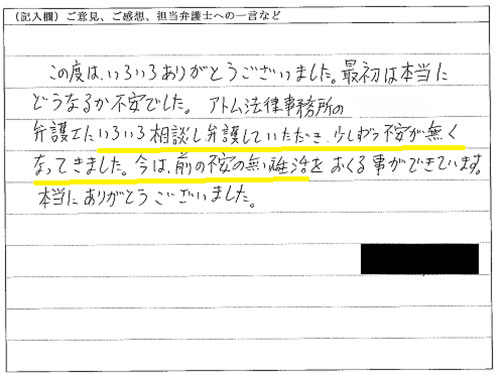 （記入欄）ご意見、ご感想、担当弁護士への一言など
この度は、いろいろありがとうございました。最初は本当に
どうなるか不安でした。アトム法律事務所の
弁護士にいろいろ相談し弁護していただき、少しずつ不安が無く
なってきました。今は、前の不安の無い生活をおくる事ができています。
本当にありがとうございました。